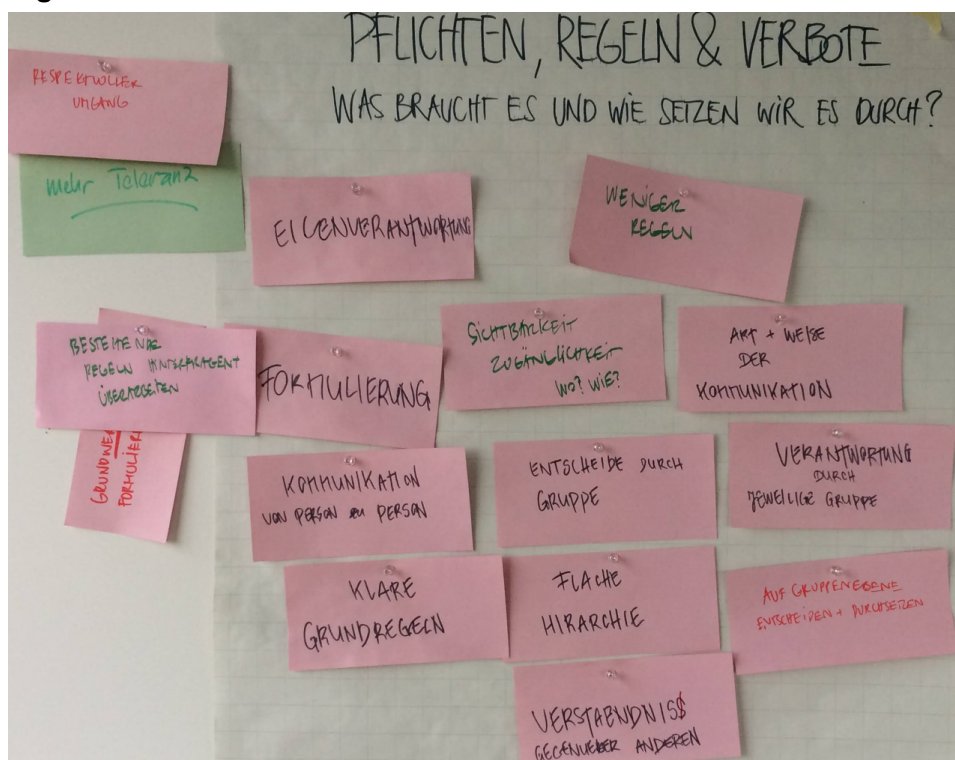 PFLICHTEN, REGELN & VERBOTE
WAS BRAUCHT ES UND WIE SETZEN WIR ES DURCH?
RESPEKTVOLLER
UMGANG
mehr Toleranz
EIGENVERANTWORTUNG
WENIGER
REGELN
BESTEHENDE
REGELN
ÜBERARBEITEN
FORMULIERUNG
SICHTBARKEIT
ZUGÄNGLICHKEIT
WO? WIE?
ART + WEISE
DER
KOMMUNIKATION
KOMMUNIKATION
VON PERSON ZU PERSON
ENTSCHEIDE DURCH
GRUPPE
VERANTWORTUNG
DURCH
JEWEILIGE GRUPPE
KLARE
GRUNDREGELN
FLACHE
HIRARCHIE
AUF GRUPPENEBENE
ENTSCHEIDEN + DURCHSETZEN
VERSTAENDNISS
GEGENUEBER ANDEREN